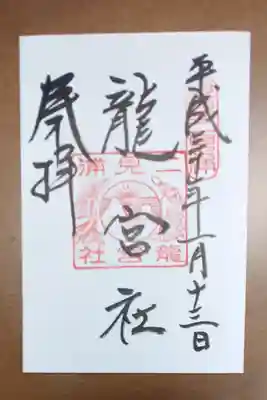 平成三十年一月十三日
龍宮社
奉拝
二見浦
龍宮社